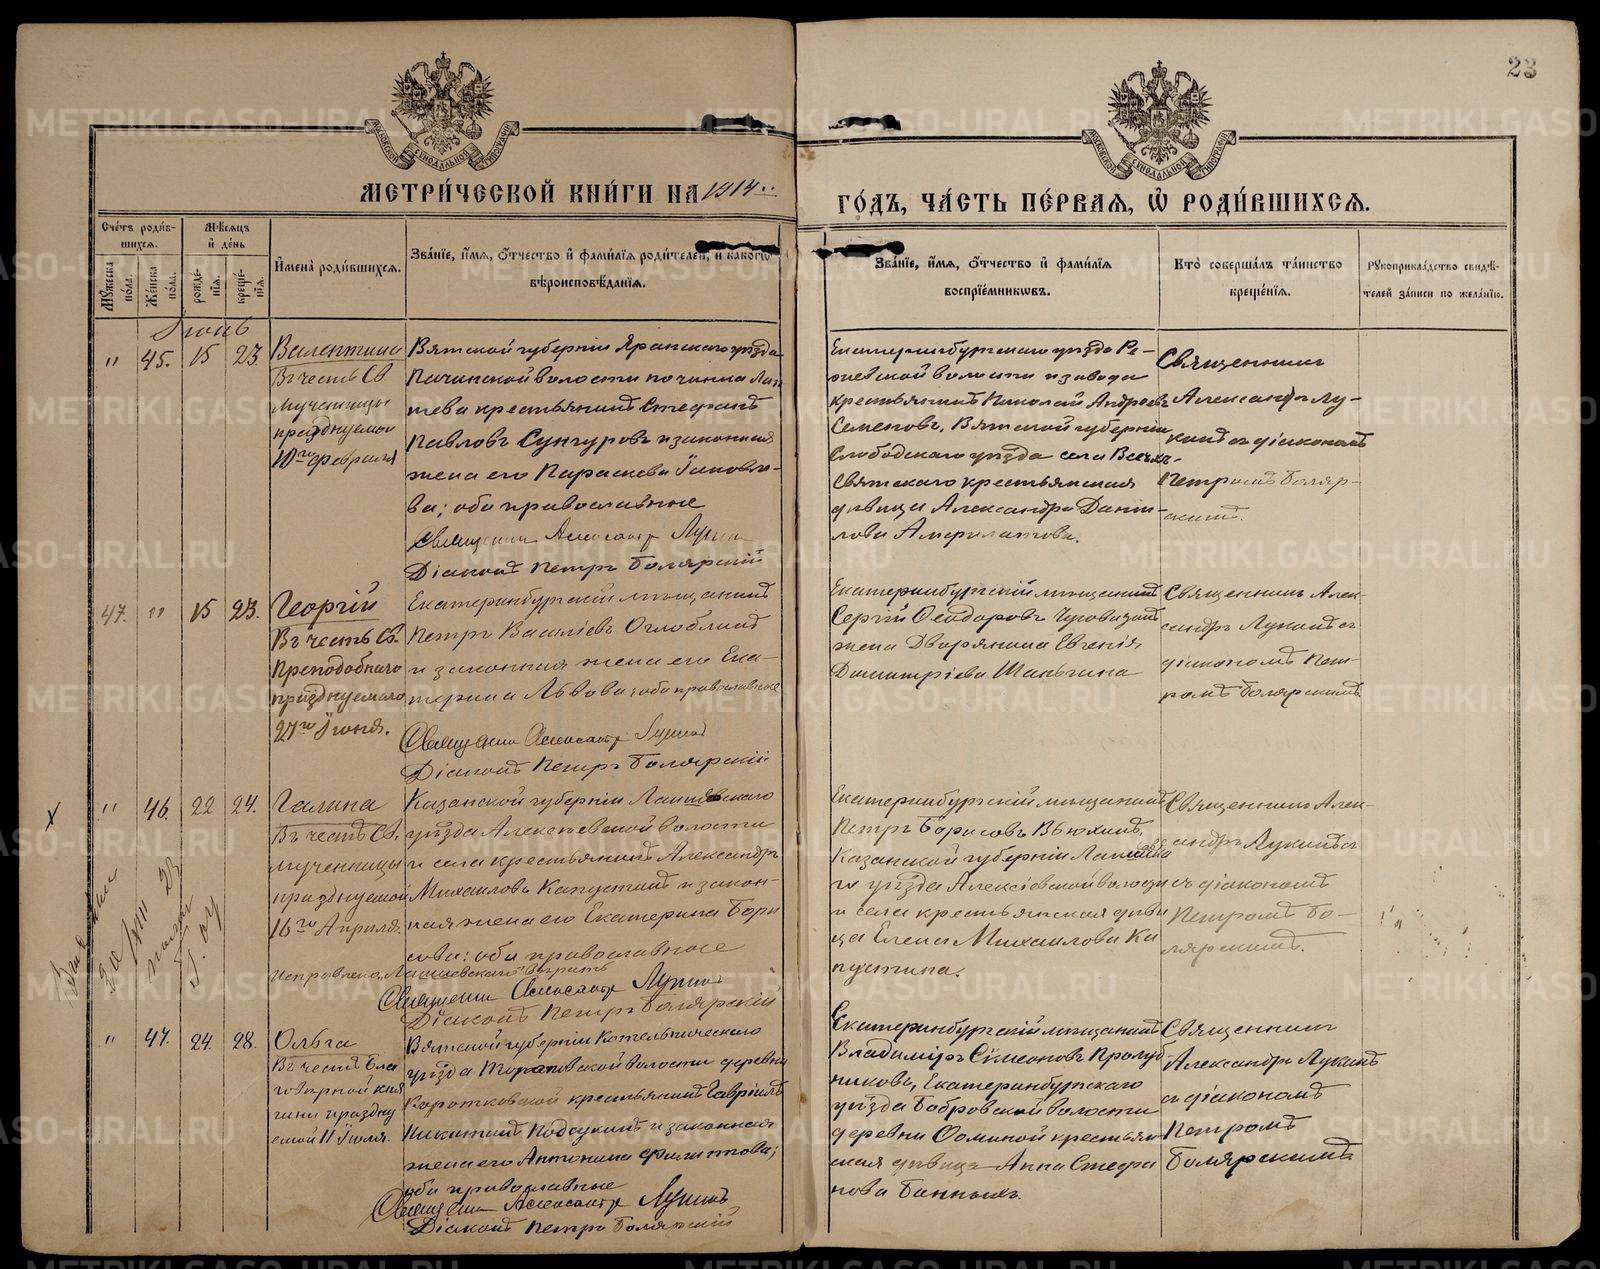 23
МЕТРИ́ЧЕСКОЙ КНИ́ГИ НА 1914
ГО́ДЪ, ЧА́СТЬ ПЕ́РВАЯ, Ѡ҆ РОДИ́ВШИХСЯ.
МОСКОВСКОЙ СѴНОДАЛЬНОЙ ТИПОГРАФІИ
МОСКОВСКОЙ СѴНОДАЛЬНОЙ ТИПОГРАФІИ
Сче́тъ роди́в-
шихся.
Мѣ́сяцъ
и҆ де́нь
Му́жеска по́ла.
Же́нска по́ла.
рожде́-
нія.
креще́-
нія.
И҆мена̀ роди́вшихся.
Зва́ніе, и҆́мя, ѻ҆́тчество и҆ фами́лія роди́телей, и҆ како́гѡ
вѣроисповѣ́данія.
Зва́ніе, и҆́мя, ѻ҆́тчество и҆ фами́лія
воспріе́мникѡвъ.
Кто̀ соверша́лъ та́инство
креще́нія.
Рукоприкла́дство свидѣ́-
телей за́писи по жела́нію.
Іюнь
" 45. 15 23. Валентина
Въ честь Св.
мученицы
празднуемой
10го февраля
Вятской губерніи Яранскаго уѣзда
Пачинской волости починка Лап
тева крестьянинъ Стефанъ
Павловъ Сунгуровъ и законная
жена его Параскева Іаковле-
ва; оба православные
Священникъ Александръ Лукинъ
Діаконъ Петръ Боляровскій
Екатеринбургскаго уѣзда Ре-
жевской волости и завода
крестьянинъ Николай Андреевъ
Семеновъ, Вятской губерніи
Слободскаго уѣзда села Всѣхъ-
святскаго крестьянская
дѣвица Александра Дани-
лова Амфилатова.
Священникъ
Александръ Лу-
кинъ съ діакономъ
Петромъ Боляр-
скимъ.
47. " 15 23. Георгій
Въ честь Св.
Преподобнаго
празднуемаго
27го Іюня.
Екатеринбургскій мѣщанинъ
Петръ Василіевъ Оглоблинъ
и законная жена его Ека-
терина Львова; оба православные
Священникъ Александръ Лукинъ
Діаконъ Петръ Болярскій
Екатеринбургскій мѣщанинъ
Сергій Ѳеодоровъ
жена Дворянина Евгенія
Димитріева Шаньгина
Священникъ Алек-
сандръ Лукинъ съ
діакономъ Пет-
ромъ Болярскимъ
" 46. 22 24. Галина
Въ честь Св.
мученицы
празднуемой
16го Апрѣля.
Казанской губерніи Лаишевскаго
уѣзда Алексѣевской волости
и села крестьянинъ Александръ
Михаиловъ Капустинъ и закон-
ная жена его Екатерина Бори
сова; оба православные
Исправлено „Лаишевскаго" вѣрить
Священникъ Александръ Лукинъ
Діаконъ Петръ Болярскій
Екатеринбургскій мѣщанинъ
Петръ Борисовъ Вьюхинъ,
Казанской губерніи Лаишевска
го уѣзда Алексіевской волости
и села крестьянская дѣви
ца Елена Михаилова Ка
пустина.
Священникъ Алек-
сандръ Лукинъ
съ діакономъ
Петромъ Бо-
лярскимъ.
" 47. 24. 28. Ольга
Въ честь Бла
говѣрной кня
гини праздну
емой 11 Іюля.
Вятской губерніи Котельническаго
уѣзда волости деревни
Коротковской крестьянинъ Гавріилъ
Никитинъ и законная
жена его Антонина Филиппова;
оба православные
Священникъ Александръ Лукинъ
Діаконъ Петръ Болярскій
Екатеринбургскій мѣщанинъ
Владиміръ Сѵмеоновъ Пролуб-
никовъ, Екатеринбургскаго
уѣзда Бобровской волости
деревни Ѳоминой крестьян
ская дѣвица Анна Стефа
нова Банныхъ.
Священникъ
Александръ Лукинъ
съ діакономъ
Петромъ
Болярскимъ
METRIKI.GASO-URAL.RU